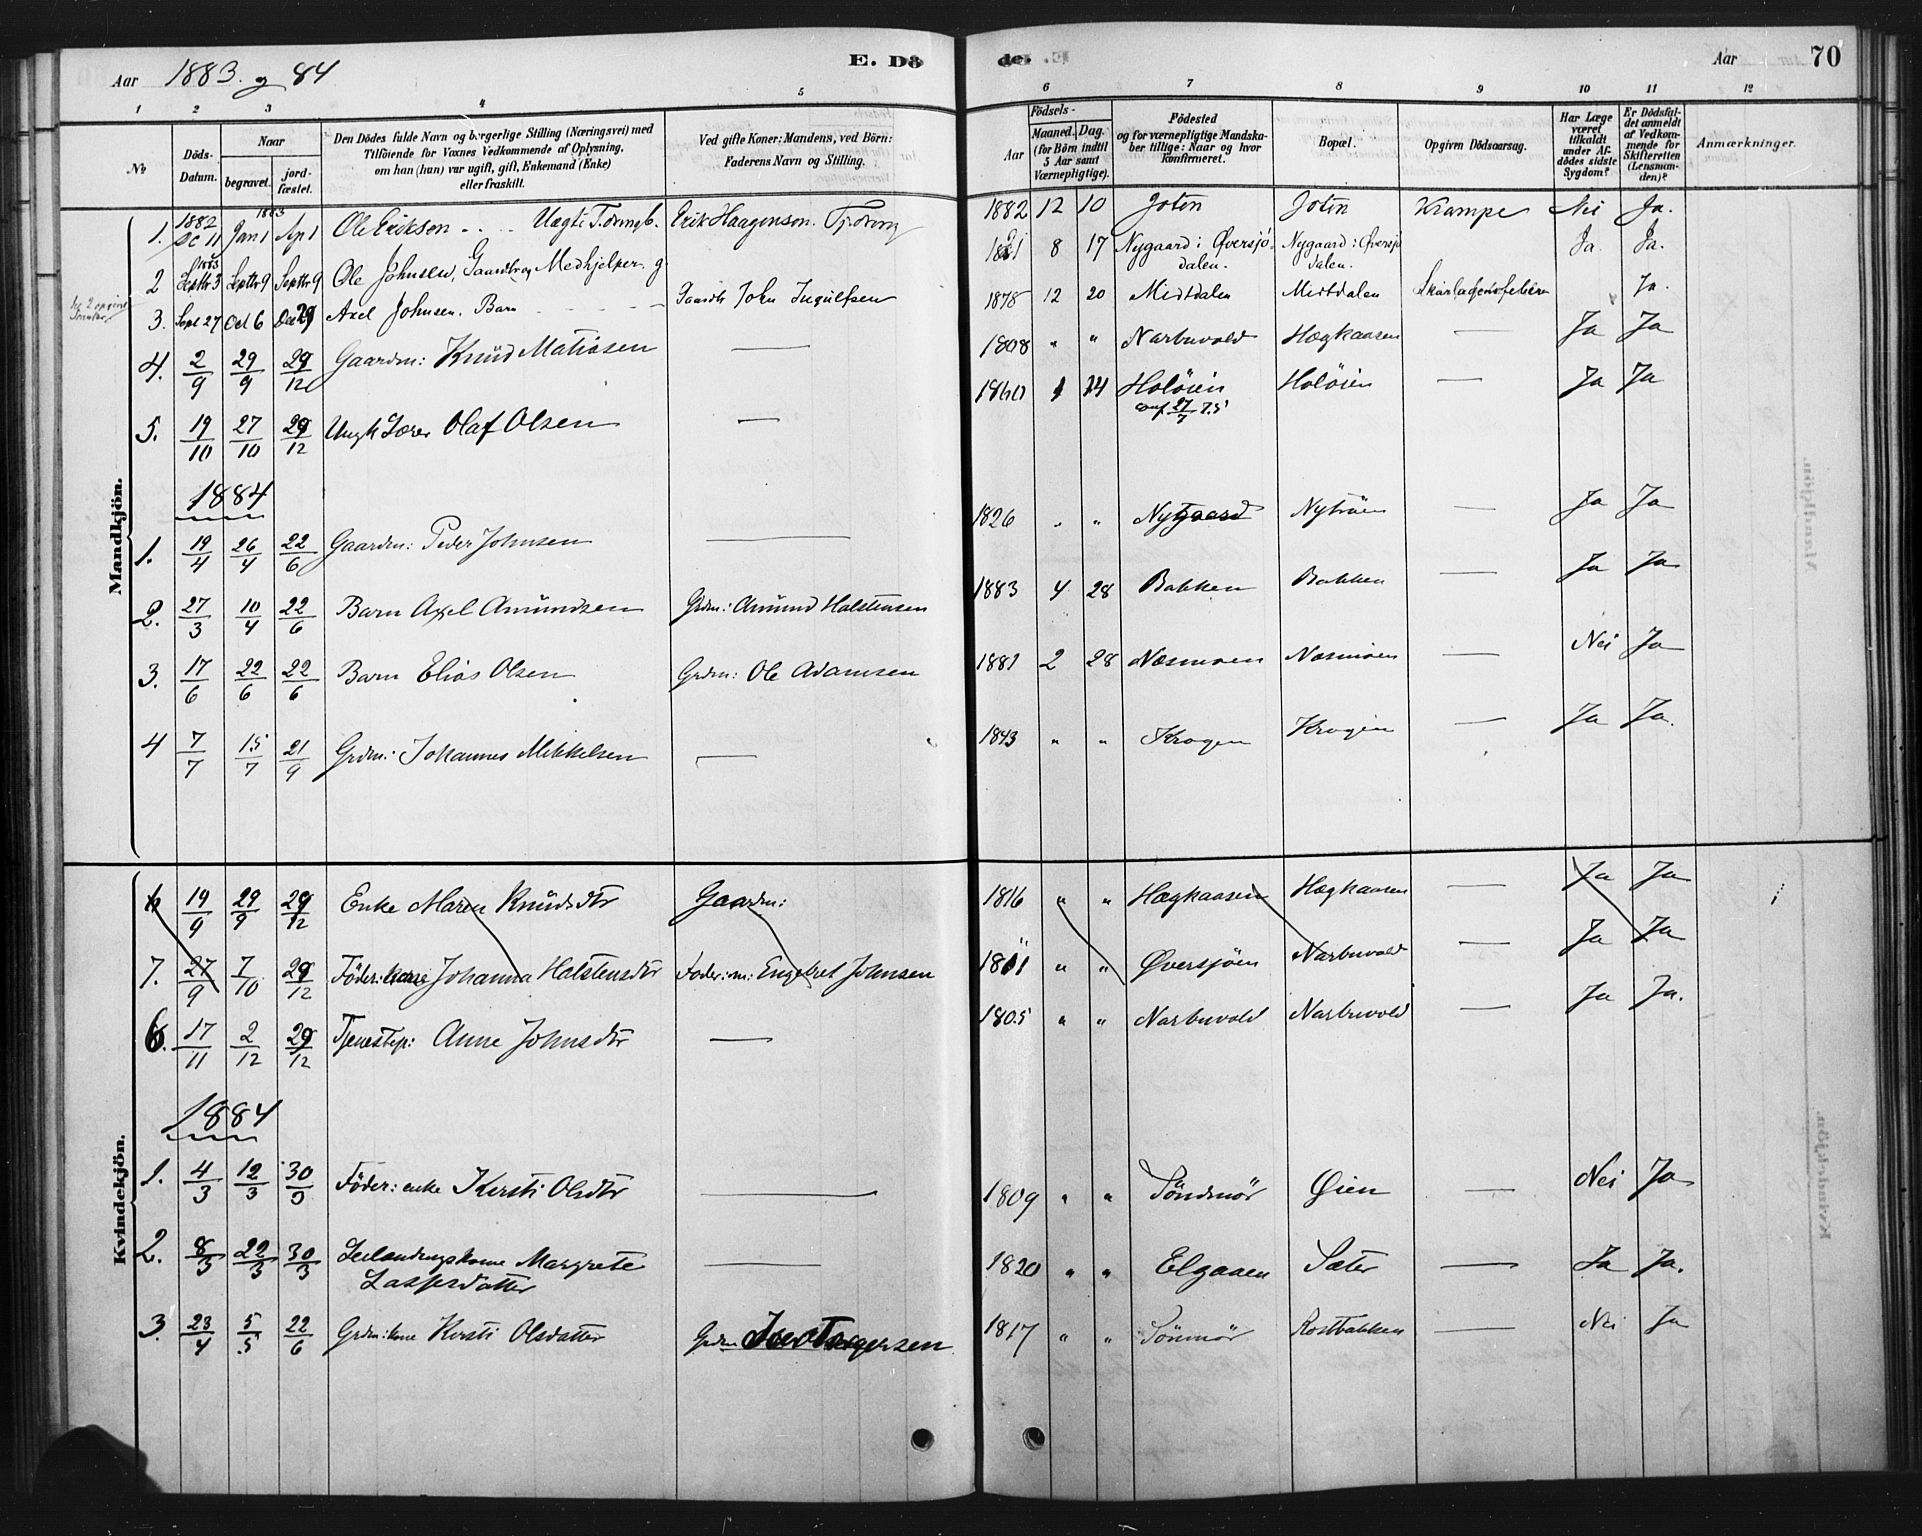 Aar 1883. g 84
E. Dö
de. E.
Aar
70
1 2 3 4 5 6 7 8 9 10 11 12
No
Döds-Datum.
Naar
begravet.
jordfæstet.
Den Dödes fulde Navn og borgerlige Stilling (Næringsvei) med Tilföiende for Voxnes Vedkommende af Oplysning, om han (hun) var ugift, gift, Enkemand (Enke) eller fraskilt.
Ved gifte Koner: Mandens, ved Börn: Faderens Navn og Stilling.
Födsels-
Aar
Maaned. Dag.
(for Börn indtil 5 Aar samt Værnepligtige).
Födested og for værnepligtige Mandskaber tillige: Naar og hvor konfirmeret.
Bopæl.
Opgiven Dödsaarsag.
Har Læge været tilkaldt under Afdödes sidste Sygdom?
Er Dödsfaldet anmeldt af Vedkommende for Skifteretten (Lensmanden)?
Anmærkninger.
Mandkjön.
1. 1882 Dc 11 Jan 1 1883 Ap 1 Ole Erikson Erik Haagenson. 1882 12 10 Joten Joten Krampe Nei Ja.
2 1883 Septbr 3 Septbr 9 Septbr 9 Ole Johnsen, Medhjelper g. 8 17 Nygaard i Øversjødalen. Nygaard i Øversjødalen. Ja. Ja.
3. Sept 27 Oct 6 Dec 29 Axel Johnsen. Barn John Ingulfsen 1878 12 20 Midtdalen Midtdalen Skarlagensfeber Ja.
4. 2/9 29/9 29/12 Gaardm: Knud Matiasen — 1808 " " Narbuvold Hægkaasen — Ja Ja
5. 19/10 27/10 29/12 Ungk Lærer Olaf Olsen — 1860 1 14 Holöien conf 27/7 75 Holöien — Ja Ja
1884
1. 19/4 26/4 22/6 Gaardm: Peder Johnsen — 1826 " " Nygaard Nytröen — Ja Ja
2. 27/3 10/4 22/6 Barn Axel Amundsen Grdm: Amund Halstensen 1883 4 28 Bakken Bakken — Ja Ja
3. 17/6 22/6 22/6 Barn Elias Olsen Grdm: Ole Adamsen 1881 2 28 Næsmoen Næsmoen — Nei Ja
4 7/7 15/7 21/9 Grdm: Johannes Mikkelsen — 1843 " " Krogen Krogen — Ja Ja.
Kvindekjön.
19/9 29/9 29/12 Enke Maren Knudsdtr Gaardm: 1816 " " Hægkaasen Hægkaasen — Ja Ja
7. 27/9 7/10 29/12 Föder: kone Johanna Halstensdtr Föder: m: Engebret Johnsen 1811 " " Øversjöen Narbuvold — Ja Ja
6. 17/11 2/12 29/12 Tjenestep: Anne Johnsdtr — 1805 " " Narbuvold Narbuvold — Ja Ja.
1884
1. 4/3 12/3 30/3 Föder: enke Kersti Olsdtr — 1809 " " Söndmör Øien — Nei Ja
2. 8/3 22/3 30/3 Margrete — 1820 " " Elgaaen Sæter — Ja Ja.
Laspersdatter
3. 23/4 5/5 22/6 Grdm: kone Kersti Olsdatter Grdm Iver Torgersen 1817 " " Sönmör Rostbakken — Nei Ja